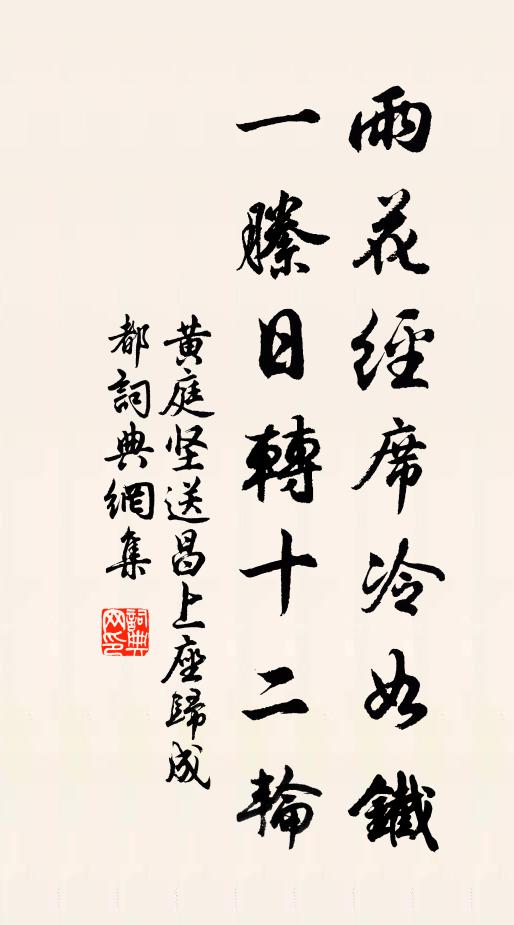 雨花經席冷如鐵
一縢日轉十二輪
黃庭坚送昌上座歸成
都詞典網集
詞典
网印